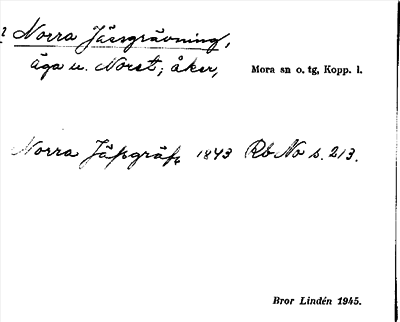 Norra Jässgrävning,
äga u. Norst; åker,
Mora sn o. tg, Kopp. l.
Norra Jäßgräf 1843 Rb No s. 213.
Bror Lindén 1945.